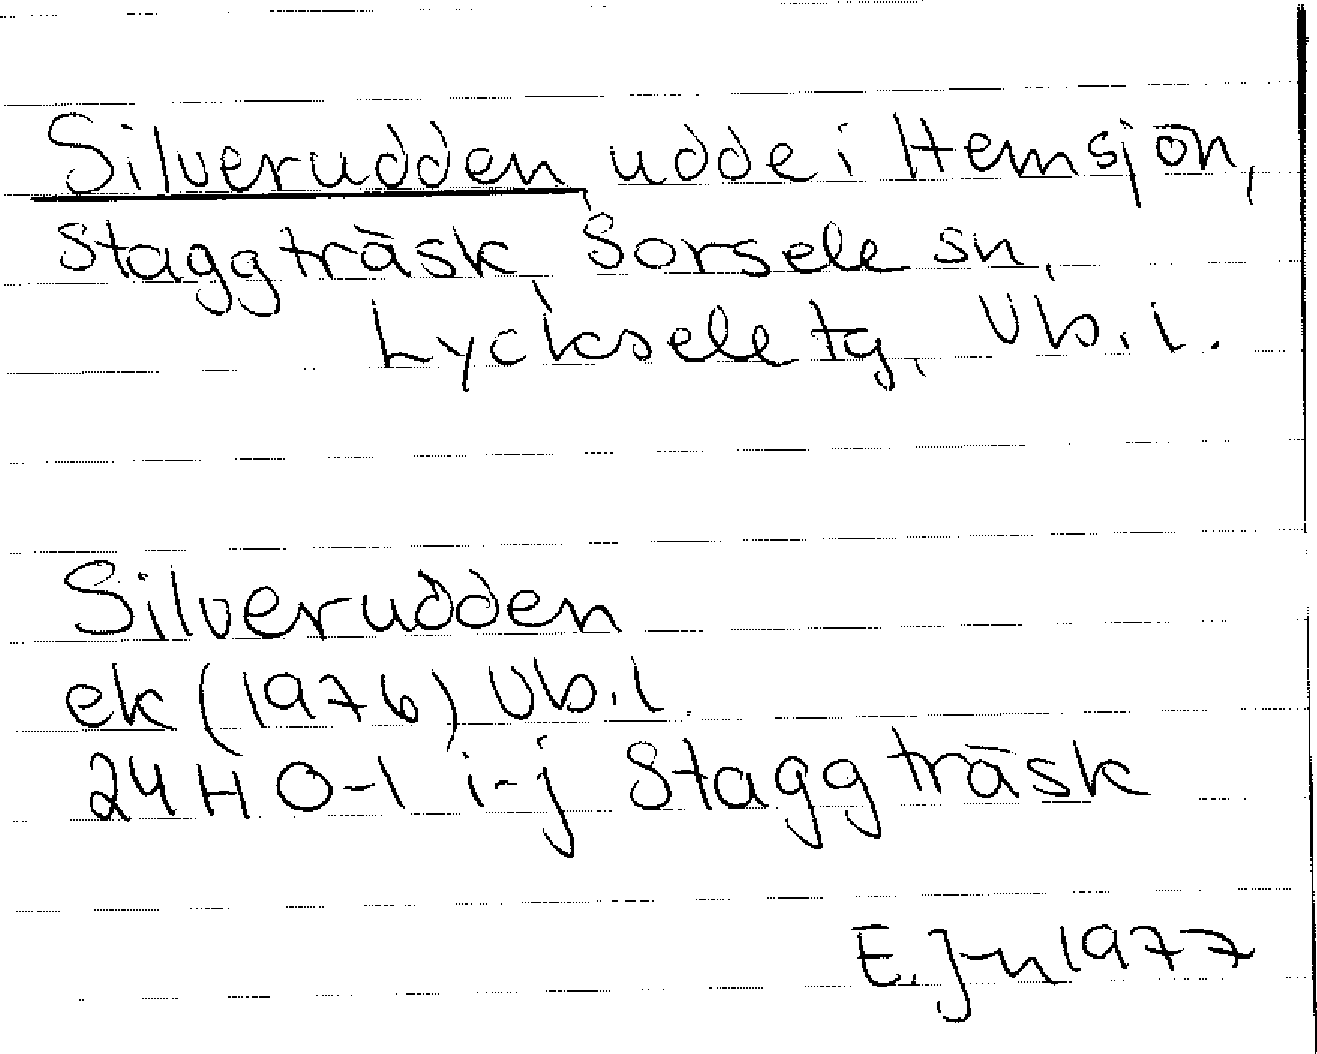 Silverudden, udde i Hemsjön,
Staggträsk, Sorsele sn,
Lycksele tg, Vb. l.
Silverudden
ek (1976) Vb. l.
24H 0-1 i-j Staggträsk
E. J-n 1977